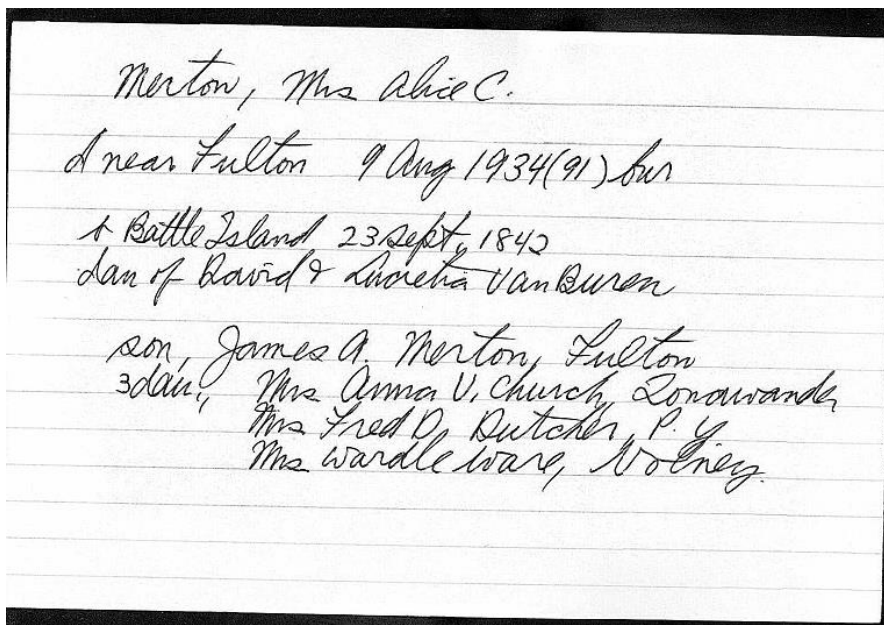 Merton, Mrs Alice C.
d near Fulton 9 Aug 1934 (91) bur
b Battle Island 23 Sept, 1842
dau of David & Lucretia VanBuren
son, James A. Merton, Fulton
3 dau., Mrs Anna V. Church, Tonawanda
Mrs Fred D. Dutcher, P. Y
Mrs Wardle Ware, Volney.